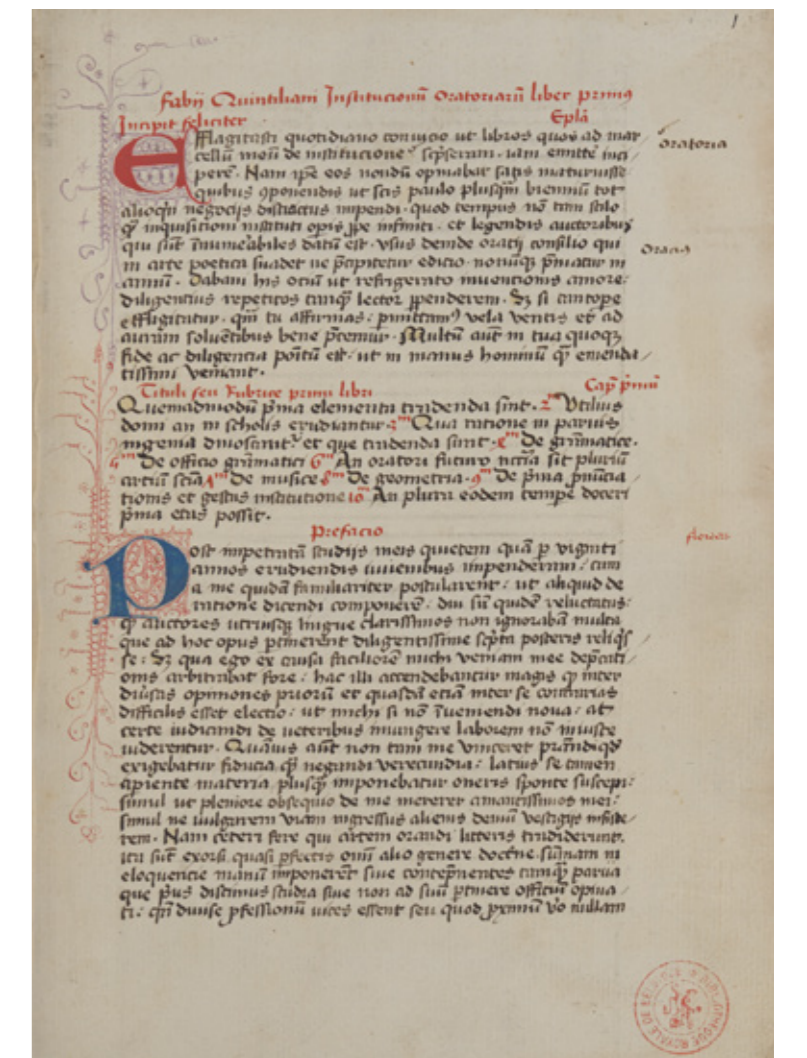 1
Fabij Quintiliani Institucionū oratoriarū liber primꝰ
Incipit feliciter Epl̄a
EFflagitasti quotidiano convicio ut libros quos ad mar
cellū meū de institucione scp̄seram · iam emitte᷑ inci
pere᷑ · Nam ip̄e eos nondū opinabar satis maturuisse
quibus ꝯponendis ut scis paulo plusqm̄ bienniū tot
alioqn̄ negocijs districtus impendi · quod tempus nō tam stilo
qͫ inquisitioni instituti opis ꝓpe infiniti · et legendis auctoribuꝫ
qui sūt īnumerabiles datū est · Usus deinde oracij consilio qui
in arte poetica suadet ne p̄cipitetur edicio · nonūqꝫ p̄matur in
annū · Dabam his ociū ut refrigerato inventionis amore ·
diligencius repetitos tanqͫ lector ꝑpenderem · Sꝫ si tantope
efflagitatur · qm̄ tu affirmas · pmittamꝰ vela ventis et ad
auram solvētibus bene p̄cemur · Multū aūt in tua quoqꝫ
fide ac diligencia poītū est · ut in manus hominū qͫ emenda
tissimi veniant ·
Tituli seu Rubrice primi libri Cap̄ p̄mū
Quemadmodū p̄ma elementa tradenda sint · 2ᵐ Utilius
domi an in scholis erudiantur · 3ᵐ Qua ratione in parvis
ingenia dinoscant᷑ et que tradenda sint · 4ᵐ De grāmatice ·
5ᵐ De officio grāmatici 6ᵐ An oratori futuro nccīa sit pluriū
artiū scīa 7ᵐ De musice 8ᵐ De geometria · 9ᵐ De p̄ma p̄nūcia
tionis et gestus institutione 10ᵐ An plura eodem tempe᷑ doceri
p̄ma etas possit ·
Prefacio
POst impetratā studijs meis quietem quā p viginti
annos erudiendis iuvenibus impenderam : cum
a me quidā familiariter postularent : ut aliquid de
ratione dicendi componerē : diu sū quidē reluctatus :
qͫ auctores utriusqꝫ lingue clarissimos non ignorabā multa
que ad hoc opus ptinerent diligentissime scp̄ta posteris reliq̄s
se : Sꝫ qua ego ex causa faciliorē michi veniam mee dep̄cati
onis arbitrabar fore : hac illi accendebantur magis qͫ inter
diūsas opiniones priorū et quasdā etiā inter se contrarias
difficilis esset electio : ut michi si nō īveniendi nova : at
certe iudicandi de veteribus iniungere laborem nō iniuste
viderentur · Quāvis aūt non tam me vinceret p̄standi qd̄
exigebatur fiducia qͫ negandi verecundia : latius se tamen
apiente materia plusqͫ imponebatur oneris sponte suscepi :
simul ut pleniore obsequio de me mererer amantissimos mei :
simul ne vulgarem viam ingressus alienis demū vestigijs insiste
rem · Nam ceteri fere qui artem orandi litteris tradiderunt ·
ita sūt exorsi quasi pfectis omī alio genere doctīne sūmam in
eloquencie manū imponerent sive contēpnentes tamqͫ parva
que p̄us discimus studia sive non ad suū ptinere officiū opina
ti : qn̄ divise pfessionū vices essent seu quod ꝓximū vo nullam
Oratoria
Oracius